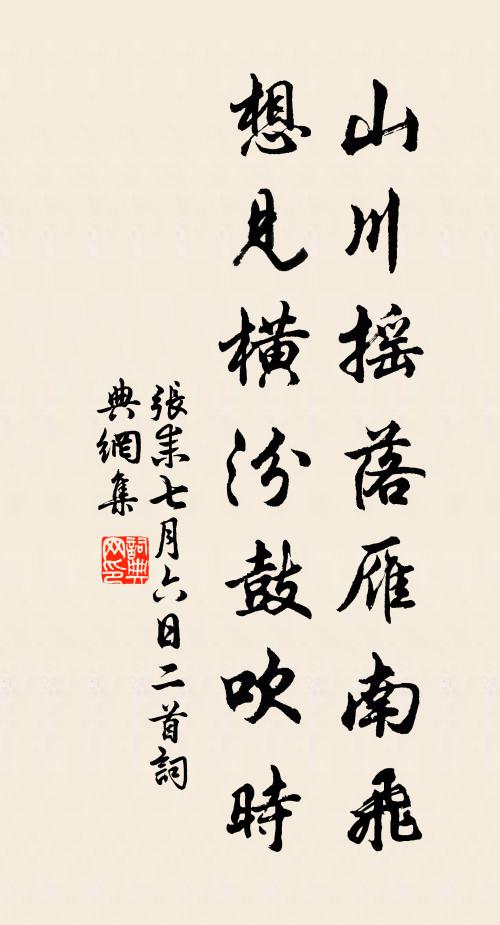 山川摇落雁南飛
想見橫汾鼓吹時
張耒七月六日二首詞
典網集
詞典
网印